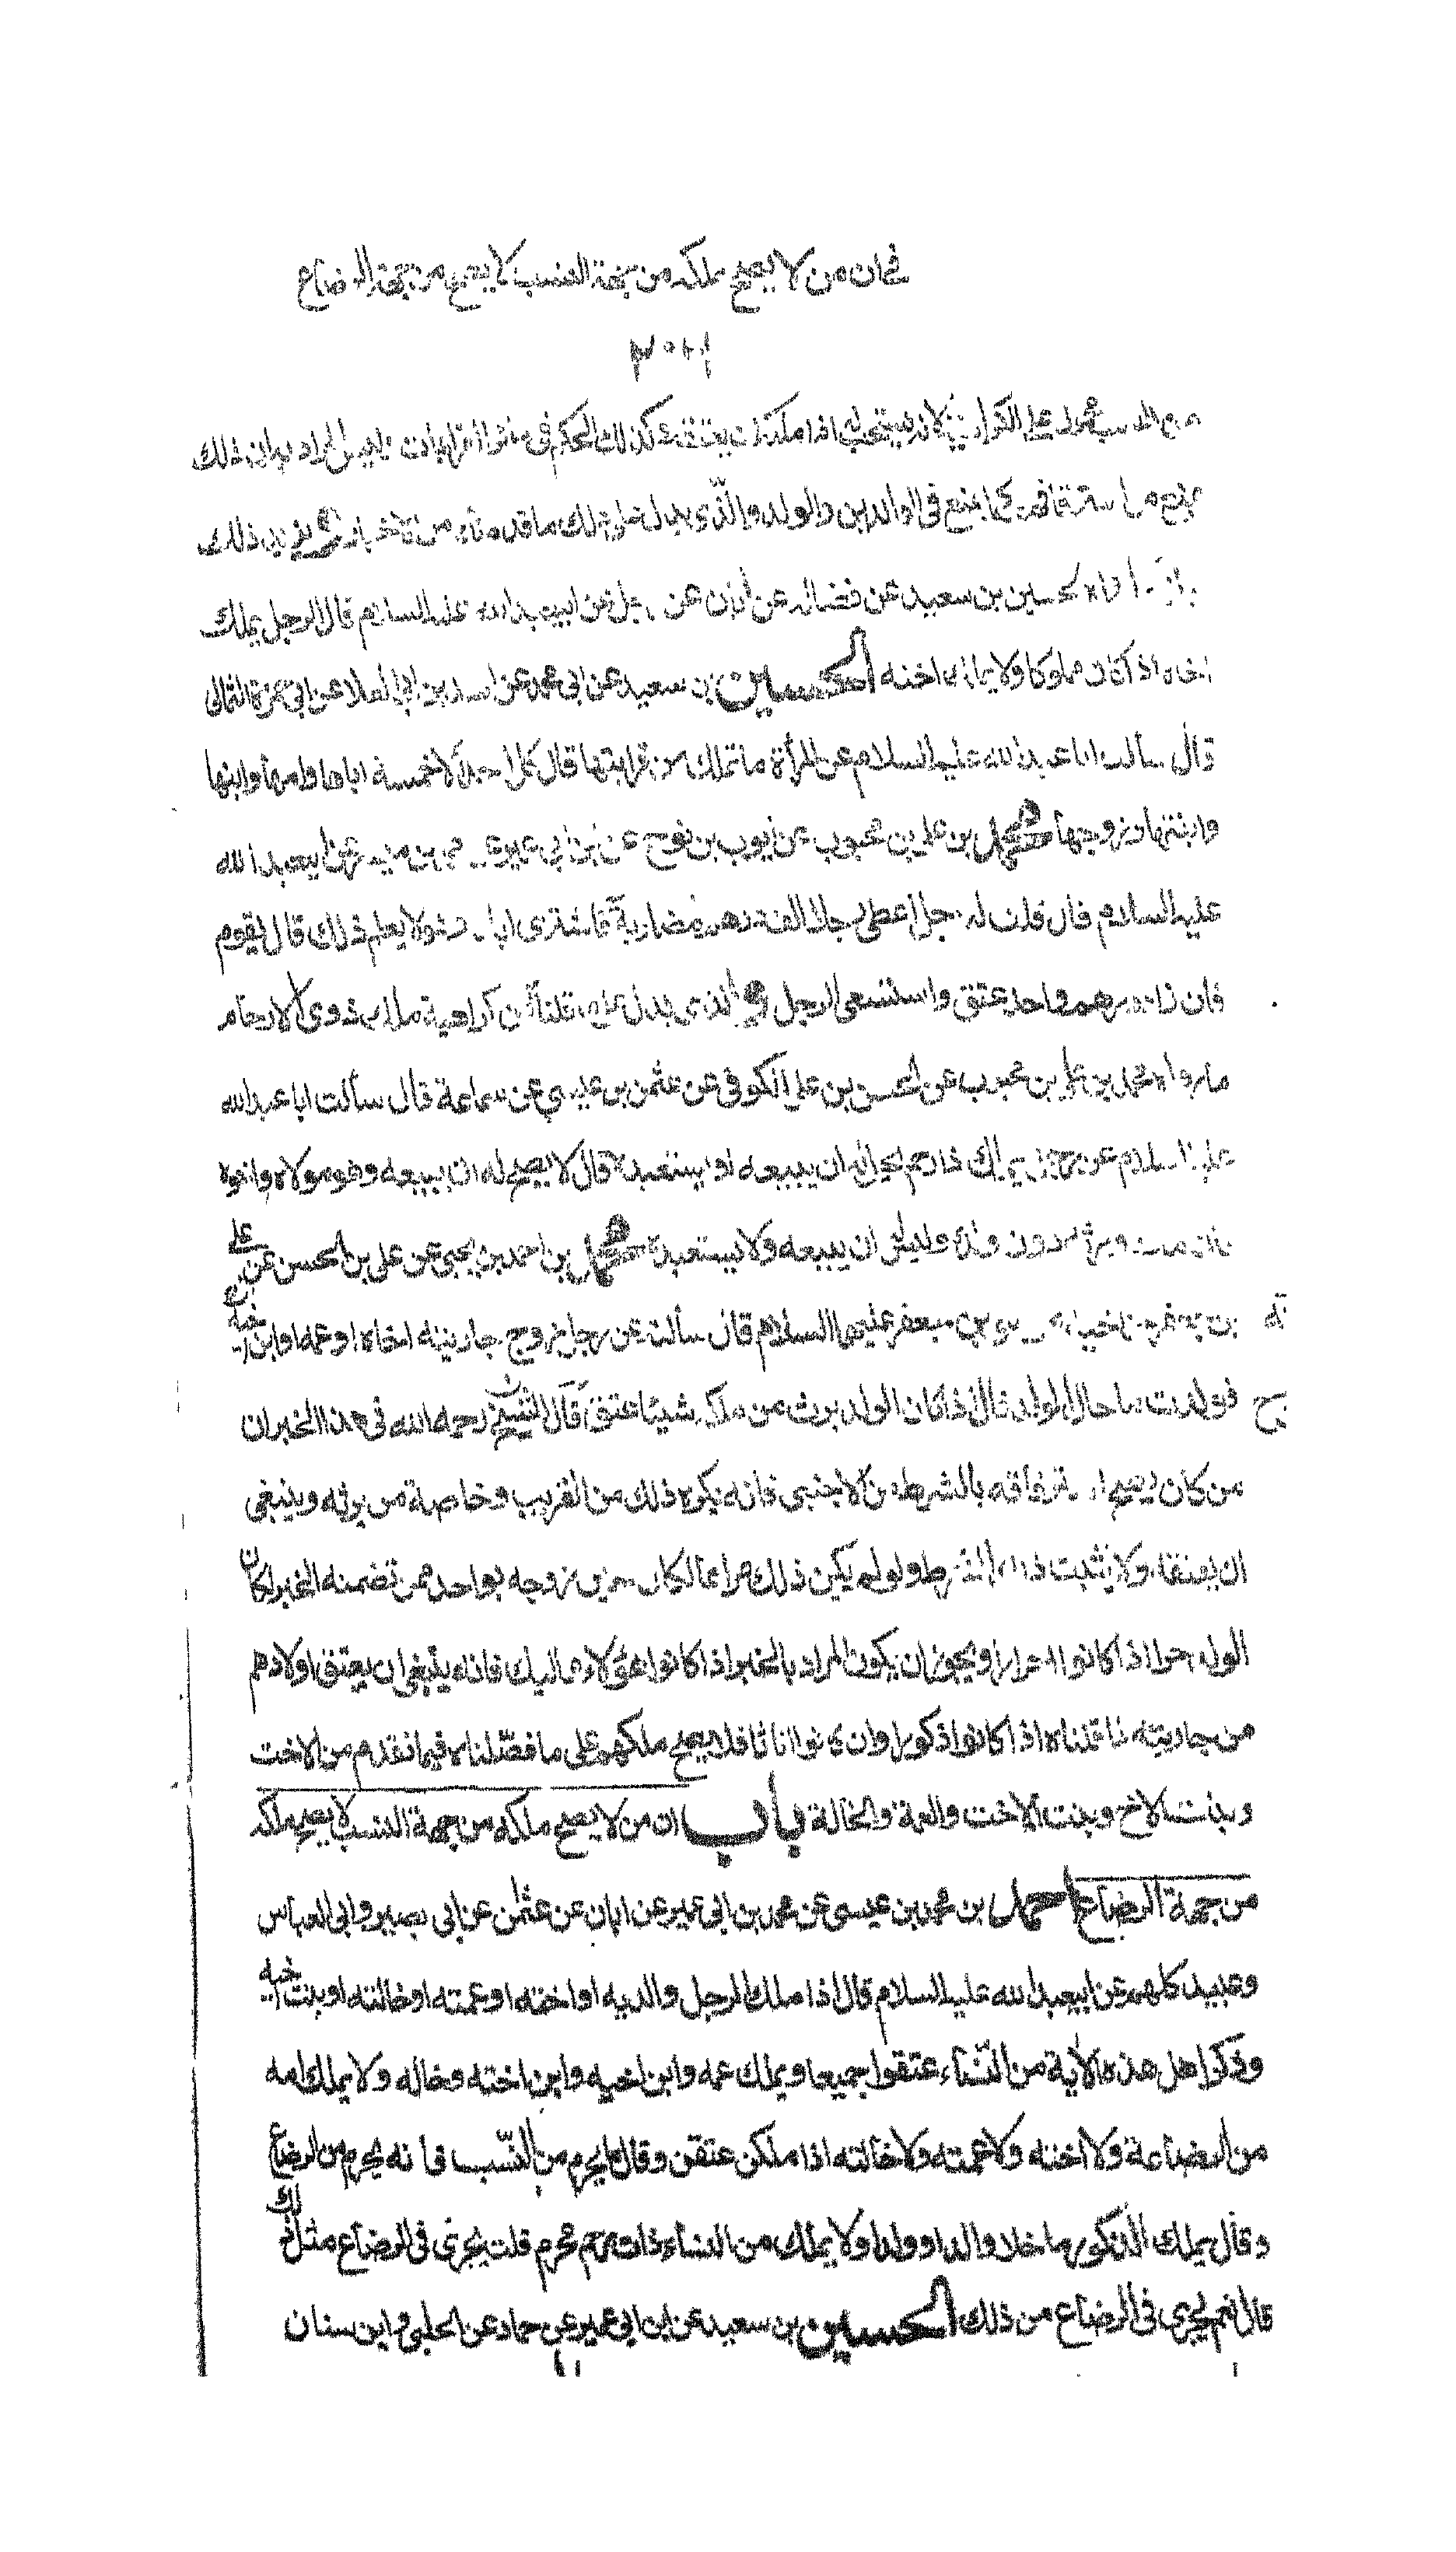 في ان من لا يصح ملكه من جهة النسب لا يصح من جهة الرضاع
محمول على الكراهية لانه يستحب له اذا ملكه ان يعتقه وكذلك الحكم في وليس المراد به ان ذلك
يمنع من استرقاقهم كما يمنع في الوالدين والولد والذي يدل على ذلك ما قدمناه من الاخبار ذلك
الحسين بن سعيد عن فضالة عن ابان عن رجل عن ابيعبدالله عليه السلام قال الرجل يملك
اخاه اذا كان مملوكا ولا يملك اخته الحسين بن سعيد عن ابي محمد عن اسد بن ابي العلا عن ابي حمزة الثمالي
قال سالت ابا عبدالله عليه السلام عن المرأة ما تملك من قرابتها قال كل احد الا خمسة اباها وامها وابنها
وابنتها وزوجها محمد بن علي بن محبوب عن ايوب بن نوح عن ابن ابي عمير عن بن ميسر عن ابيعبدالله
عليه السلام قال قلت له رجل اعطى رجلا الف درهم مضاربة فاشترى اباه وهو لا يعلم ذلك قال يقوم
فان زاد درهم واحد عتق واستسعى الرجل والذي يدل على ما قلناه من كراهية ملك ذوي الارحام
ما رواه محمد بن علي بن محبوب عن الحسن بن علي الكوفي عن عثمن بن عيسى عن سماعة قال سألت ابا عبدالله
عليه السلام عن رجل يملك ذا رحم يحل له ان يبيعه او يستعبده قال لا يصلح له ان يبيعه وهو مولاه واخوه
فان مات ورثه دون ولده وليس له ان يبيعه ولا يستعبده محمد بن احمد بن يحيى عن علي بن الحسن عن علي
بن جعفر عن اخيه موسى بن جعفر عليهما السلام قال سألته عن رجل زوج جاريته اخاه او عمه او ابن اخيه
فولدت ما حال الولد قال اذا كان الولد يرث من ملكه شيئا عتق قال الشيخ رحمه الله في هذا الخبر ان
من كان يصح استرقاقه بالشرط من الاجنبي فانه يكره ذلك من القريب وخاصة من يرثه وينبغي
ان يعتقه ولا يثبت ذلك الشرط ولو لم يكن ذلك مراعا لكان من زوجه بواحد ممن تضمنه الخبر لكان
الولد حرا اذا كانوا احرارا ويجوز ان يكون المراد بالخبر اذا كانوا هؤلاء مماليك فانه ينبغي ان يعتق اولادهم
من جاريته لما قلناه اذا كانوا ذكورا وان كانوا اناثا فلا يصح ملكهم على ما فصلناه فيما تقدم من الاخت
وبنت الاخ وبنت الاخت والعمة والخالة باب ان من لا يصح ملكه من جهة النسب لا يصح ملكه
من جهة الرضاع احمد بن محمد بن عيسى عن محمد بن ابي عمير عن ابان عن عثمن عن ابي بصير وابي العباس
وعبيد كلهم عن ابيعبدالله عليه السلام قال اذا ملك الرجل والديه او اخته او عمته او خالته او بنت اخيه
وذكر اهل هذه الآية من النساء عتقوا جميعا ويملك عمه وابن اخيه وابن اخته وخاله ولا يملك امه
من الرضاعة ولا اخته ولا عمته ولا خالته اذا ملكن عتقن وقال ما يحرم من النسب فانه يحرم من الرضاع
وقال يملك الذكور ما خلا والدا وولدا ولا يملك من النساء ذات رحم محرم قلت يجري في الرضاع مثل ذلك
قال نعم يجري في الرضاع من ذلك الحسين بن سعيد عن ابن ابي عمير عن حماد عن الحلبي وابن سنان